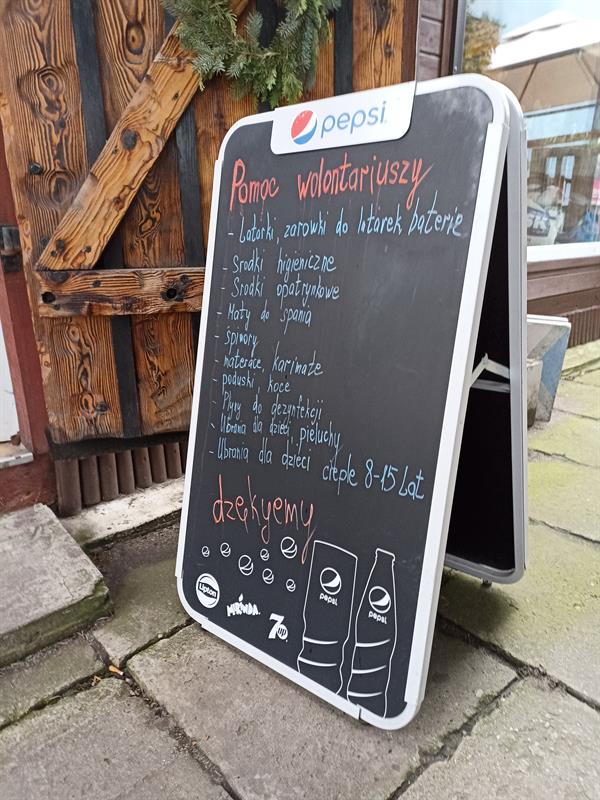 pepsi
Pomoc wolontariuszy
- Latarki, zarowki do latarek baterie
- Srodki higieniczne
- Srodki opatrynkowe
- Maty do spania
- śpiwory
- materace, karimaże
- poduski, koce
- Płyny do dezynfekcji
- Ubrania dla dzieci pieluchy
- Ubrania dla dzieci ciepłe 8-15 Lat
dzękyemy
Lipton
MIRINDA
7up
pepsi
pepsi